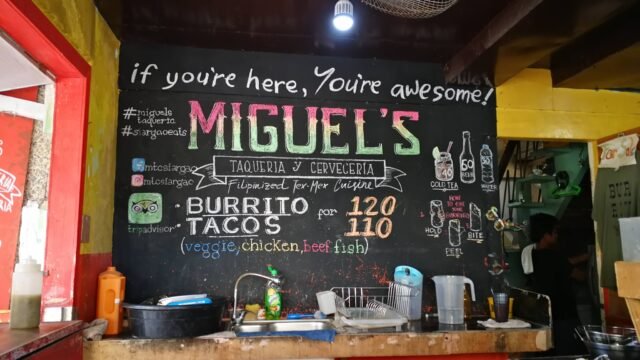 if you're here, You're awesome!
#miguels
taqueria
#siargaoeats
MIGUEL'S
TAQUERIA Y CERVECERIA
Filipinized Tex-Mex Cuisine
mtcsiargao
mtcsiargao
tripadvisor
BURRITO for 120
TACOS 110
(veggie, chicken, beef, fish)
40
COLD TEA
50
WATER
HOW
TO EAT
YOUR
HOLD
PEEL
BITE